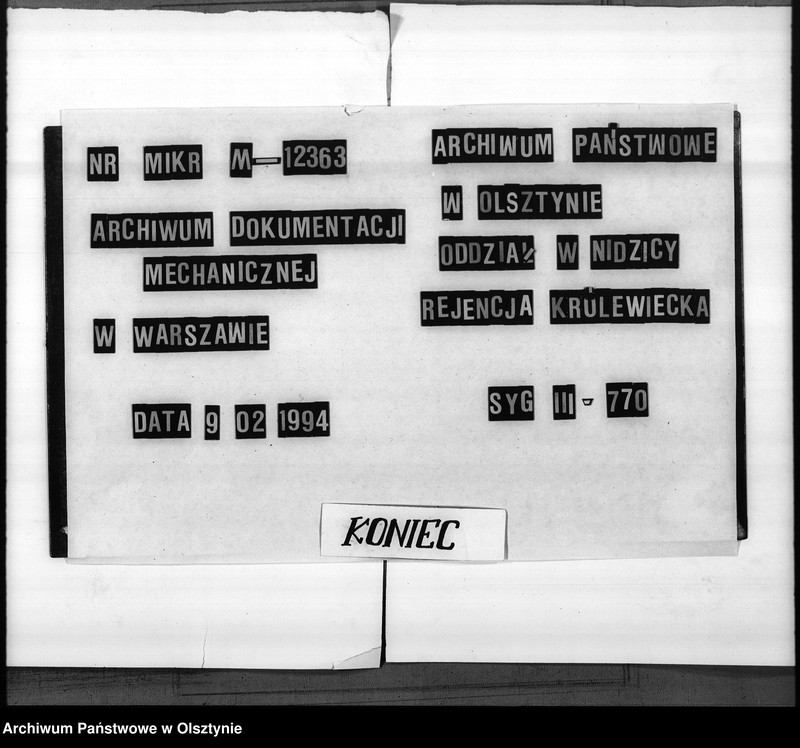 NR MIKR M-12363
ARCHIWUM DOKUMENTACJI
MECHANICZNEJ
W WARSZAWIE
DATA 9 02 1994
ARCHIWUM PAŃSTWOWE
W OLSZTYNIE
ODDZIAŁ W NIDZICY
REJENCJA KRÓLEWIECKA
SYG III-770
KONIEC
Archiwum Państwowe w Olsztynie